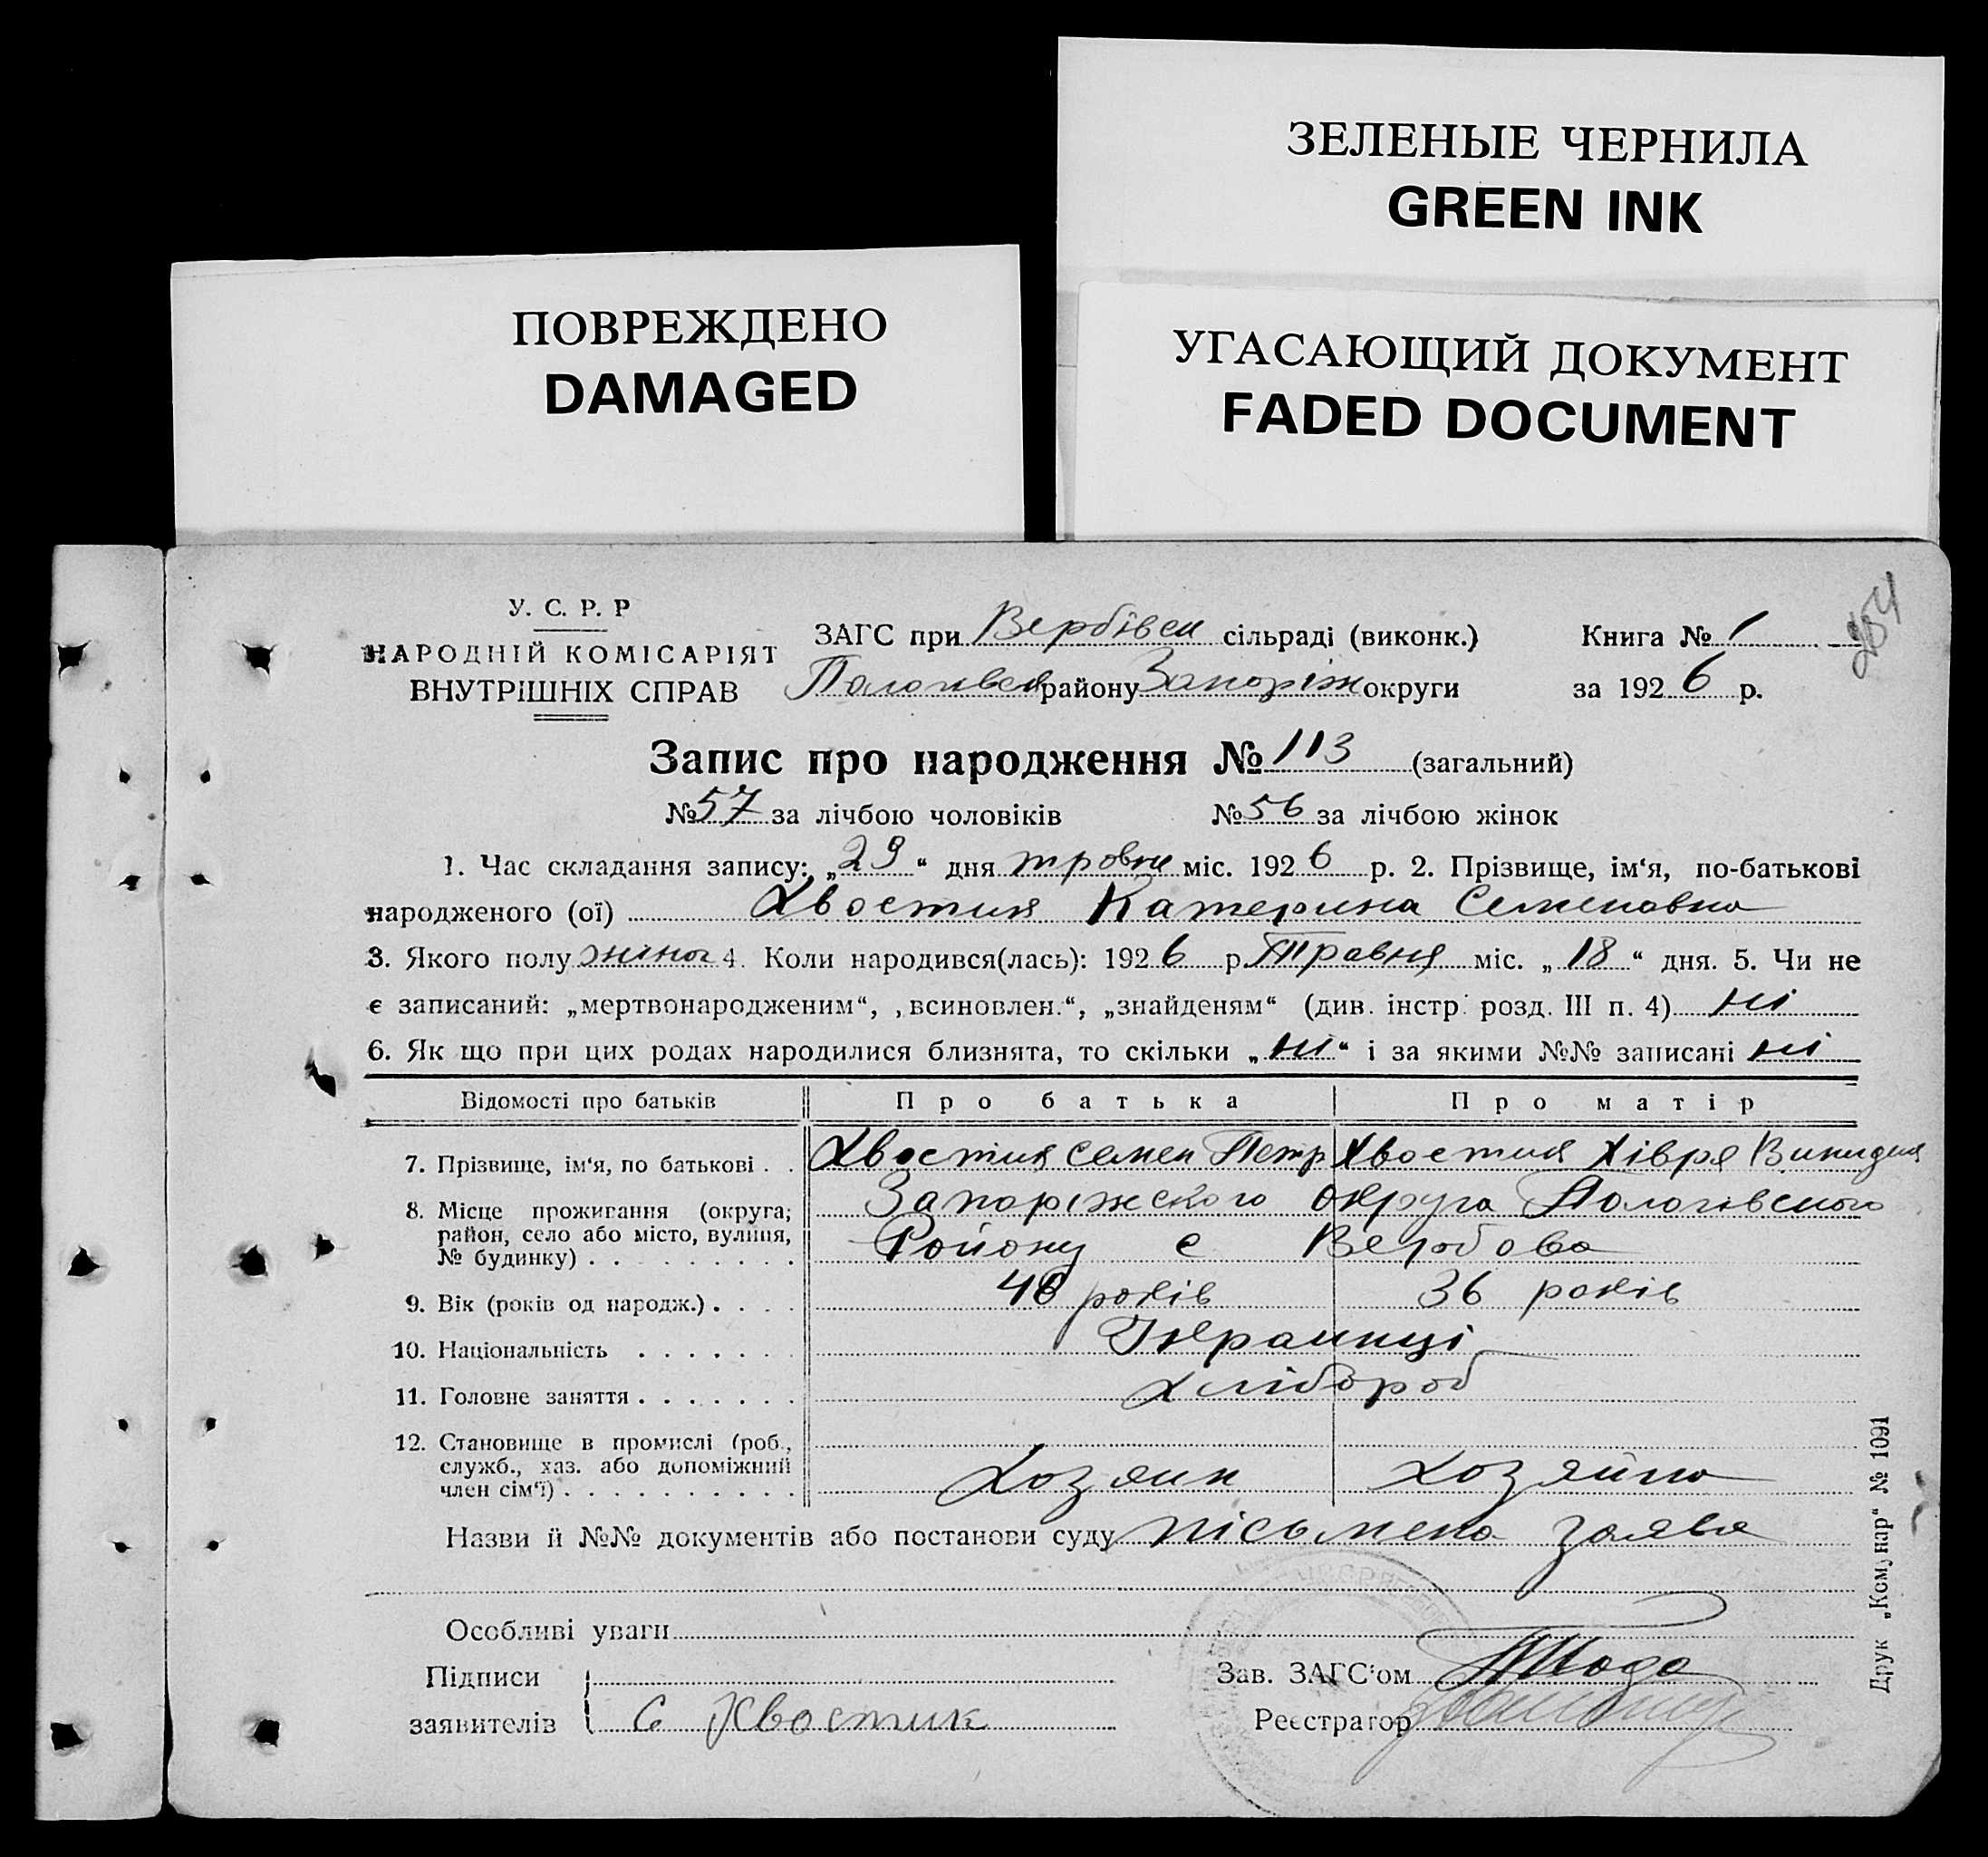 ЗЕЛЕНЫЕ ЧЕРНИЛА
GREEN INK
ПОВРЕЖДЕНО
DAMAGED
УГАСАЮЩИЙ ДОКУМЕНТ
FADED DOCUMENT
У. С. Р. Р
НАРОДНІЙ КОМІСАРІЯТ
ВНУТРІШНІХ СПРАВ
ЗАГС при Вербівск сільраді (виконк.)
Пологівськ району Запоріж округи
Книга № 1
за 1926 р.
204
Запис про народження № 113 (загальний)
№ 57 за лічбою чоловіків № 56 за лічбою жінок
1. Час складання запису: „29“ дня травня міс. 1926 р. 2. Прізвище, ім‘я, по-батькові
народженого (ої) Хвостик Катерина Семеновна
3. Якого полу жіноч 4. Коли народився(лась): 1926 р. Травня міс. „18“ дня. 5. Чи не
є записаний: „мертвонародженим“, „всиновлен.“, „знайденям“ (див. інстр. розд. III п. 4) ні
6. Як що при цих родах народилися близнята, то скільки „ні“ і за якими №№ записані ні
Відомості про батьків Про батька Про матір
7. Прізвище, ім‘я, по батькові . . Хвостик Семен Петр Хвостик Хівря
8. Місце проживання (округа, район, село або місто, вулиця, № будинку) . . . . . . . . . Запоріжського округа Пологівського
Району с Вербова
9. Вік (років од народж.) . . . . 46 років 36 років
10. Національність . . . . . . . Українці
11. Головне заняття . . . . . . . Хлібороб
12. Становище в промислі (роб., служб., хаз. або допоміжний член сім‘ї) . . . . . . . . . . Хозяин хозяйка
Назви й №№ документів або постанови суду пісьмена заява
Особливі уваги
Підписи
заявителів С Хвостик
Зав. ЗАГС‘ом
Реєстратор
Друк „Комунар“ № 1091